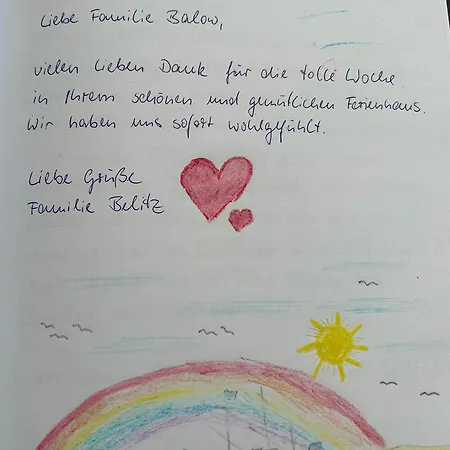 Liebe Familie Balow,
vielen lieben Dank für die tolle Woche
in Ihrem schönen und gemütlichen Ferienhaus.
Wir haben uns sofort wohlgefühlt.
Liebe Grüße
Familie Belitz